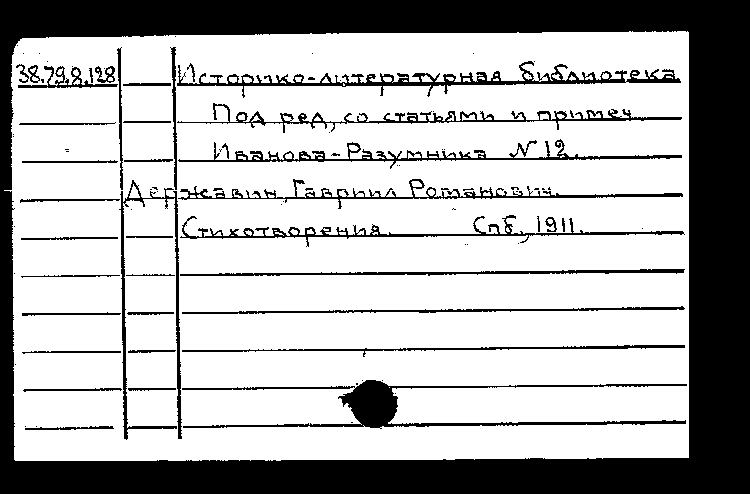 38.79.8.128 Историко-литературная библиотека
Под ред, со статьями и примеч
Иванова-Разумника N 12.
Державин, Гавриил Романович.
Стихотворения. Спб, 1911.